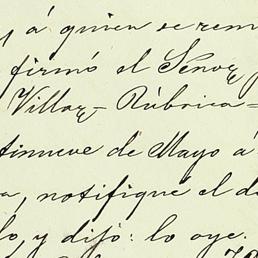 á quien se rem
firmó el Señor
Villar = Rúbrica =
tinueve de Mayo á
a, notifiqué el d
lo, y dijo: lo oye.